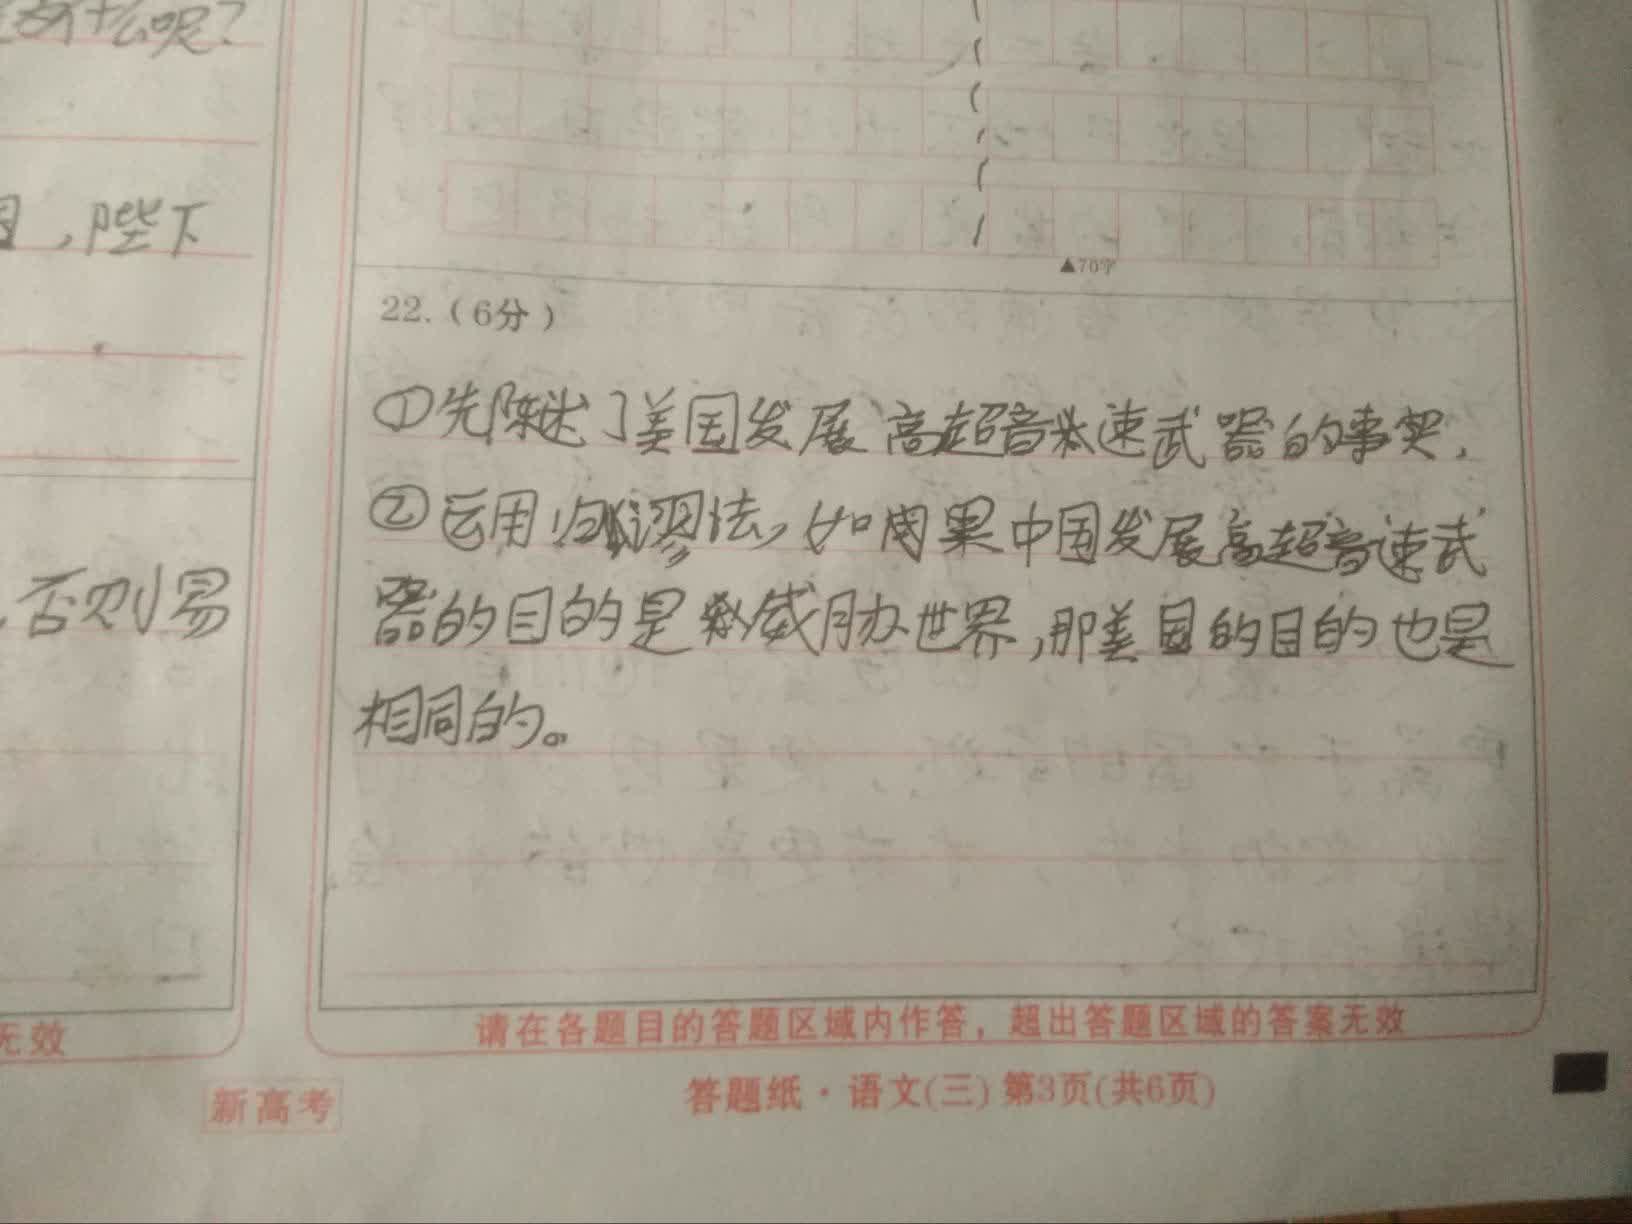 什么呢？
，陛下
否则易
无效
▲70字
22.（6分）
①先陈述了美国发展高超音速武器的事实，
②运用归谬法，如果中国发展高超音速武
器的目的是威胁世界，那美国的目的也是
相同的。
请在各题目的答题区域内作答，超出答题区域的答案无效
新高考
答题纸·语文(三) 第3页(共6页)